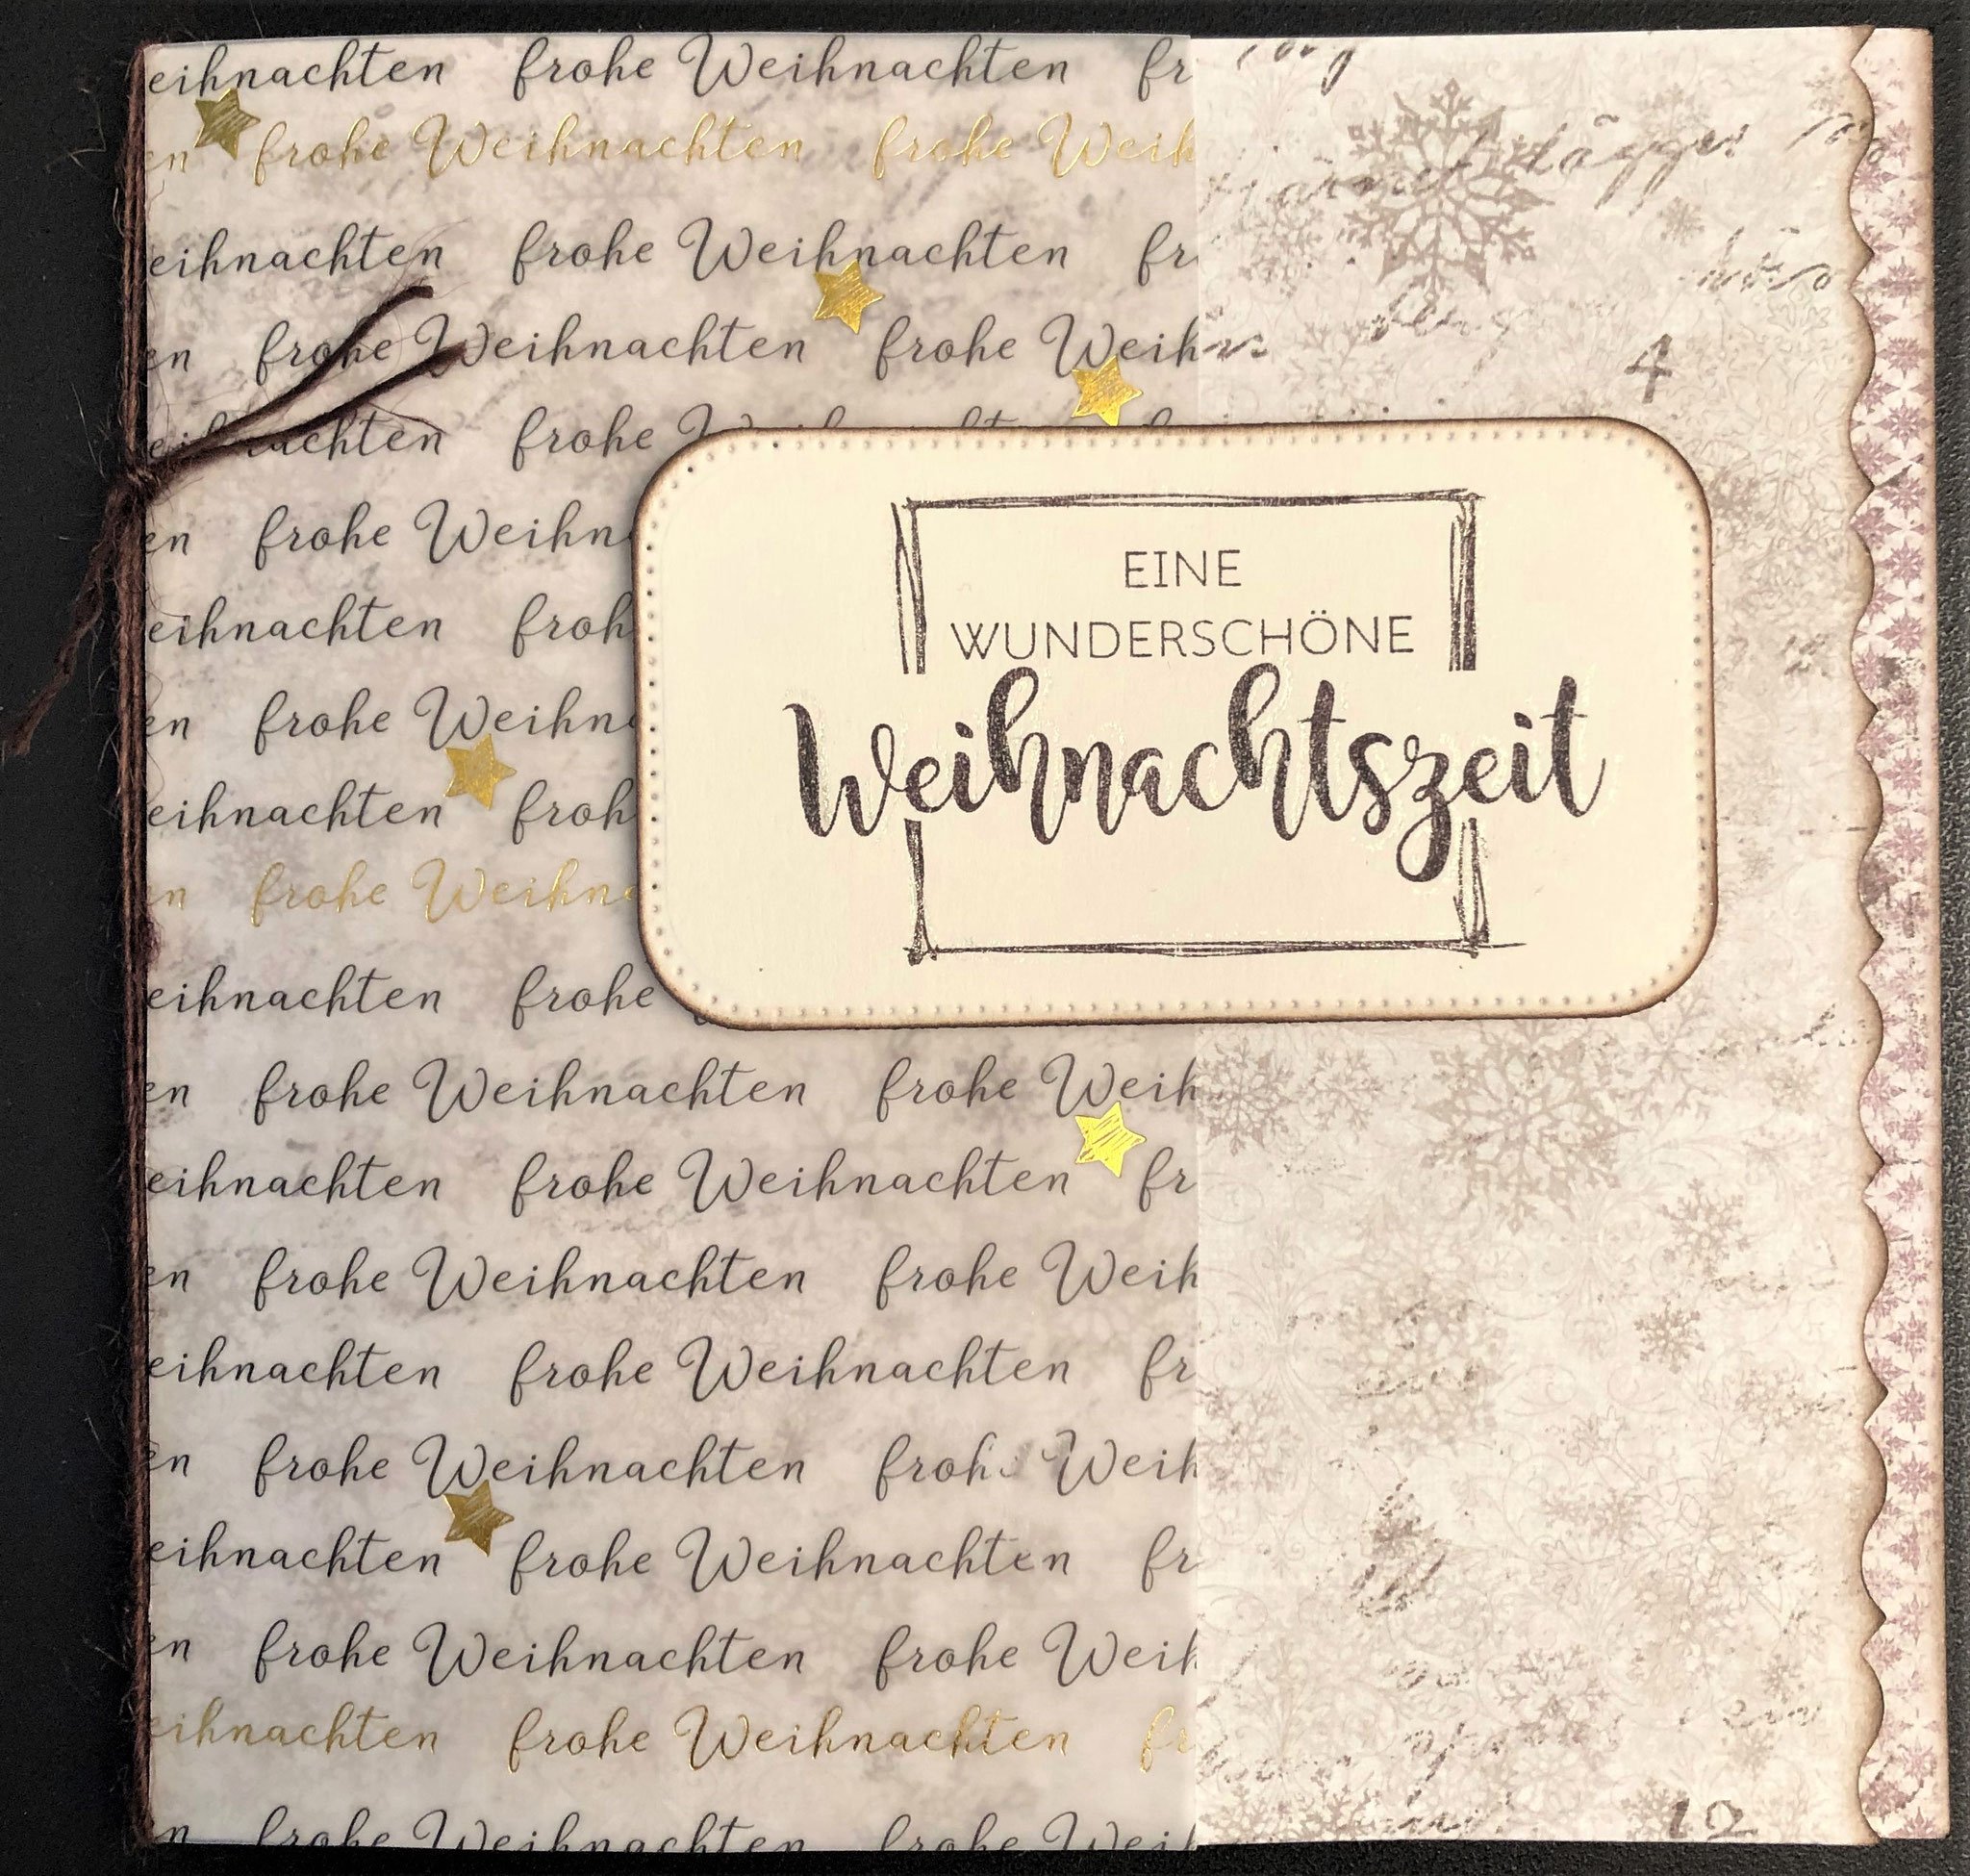 eihnachten frohe Weihnachten fr
en frohe Weihnachten frohe Weih
eihnachten frohe Weihnachten fr
en frohe Weihnachten frohe Weih
4
eihnachten frohe
en frohe Weihn
eihnachten froh
en frohe Weihn
eihnachten froh
en frohe Weihn
eihnachten frohe
EINE
WUNDERSCHÖNE
Weihnachtszeit
en frohe Weihnachten frohe Weih
eihnachten frohe Weihnachten fr
en frohe Weihnachten frohe Weih
eihnachten frohe Weihnachten fr
en frohe Weihnachten froh Weih
eihnachten frohe Weihnachten fr
en frohe Weihnachten frohe Weih
eihnachten frohe Weihnachten fr
12
en frohe Weihnachten frohe Weih